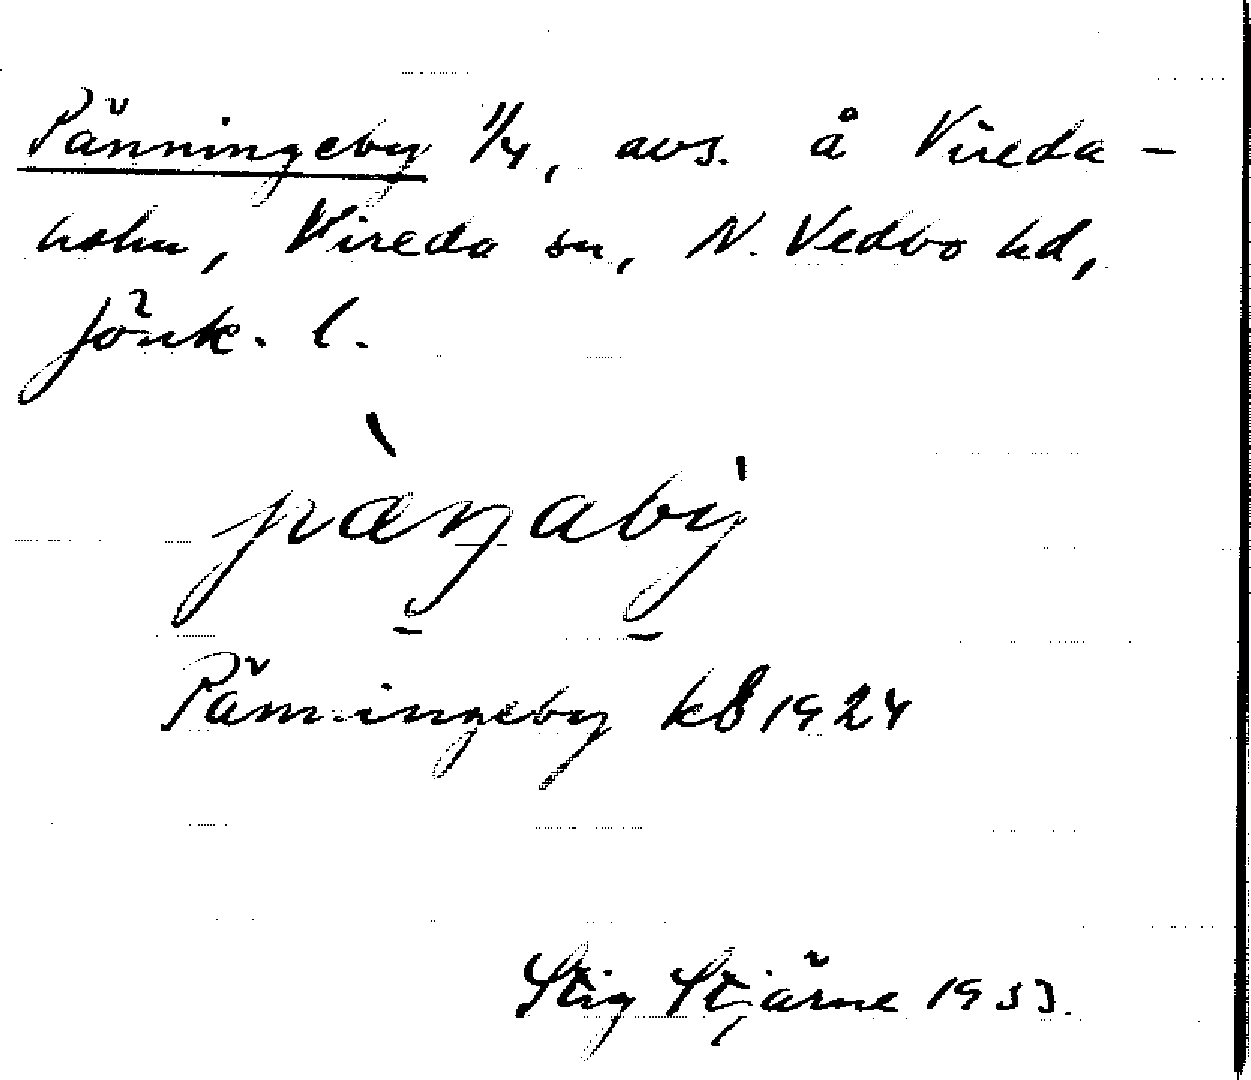 Pänningeby 1/4, avs. å Vireda-
holm, Vireda sn, N. Vedbo hd,
Jönk. l.
pæ̀ŋabẏ
Pänningeby kb 1924
Stig Stjärne 1933.